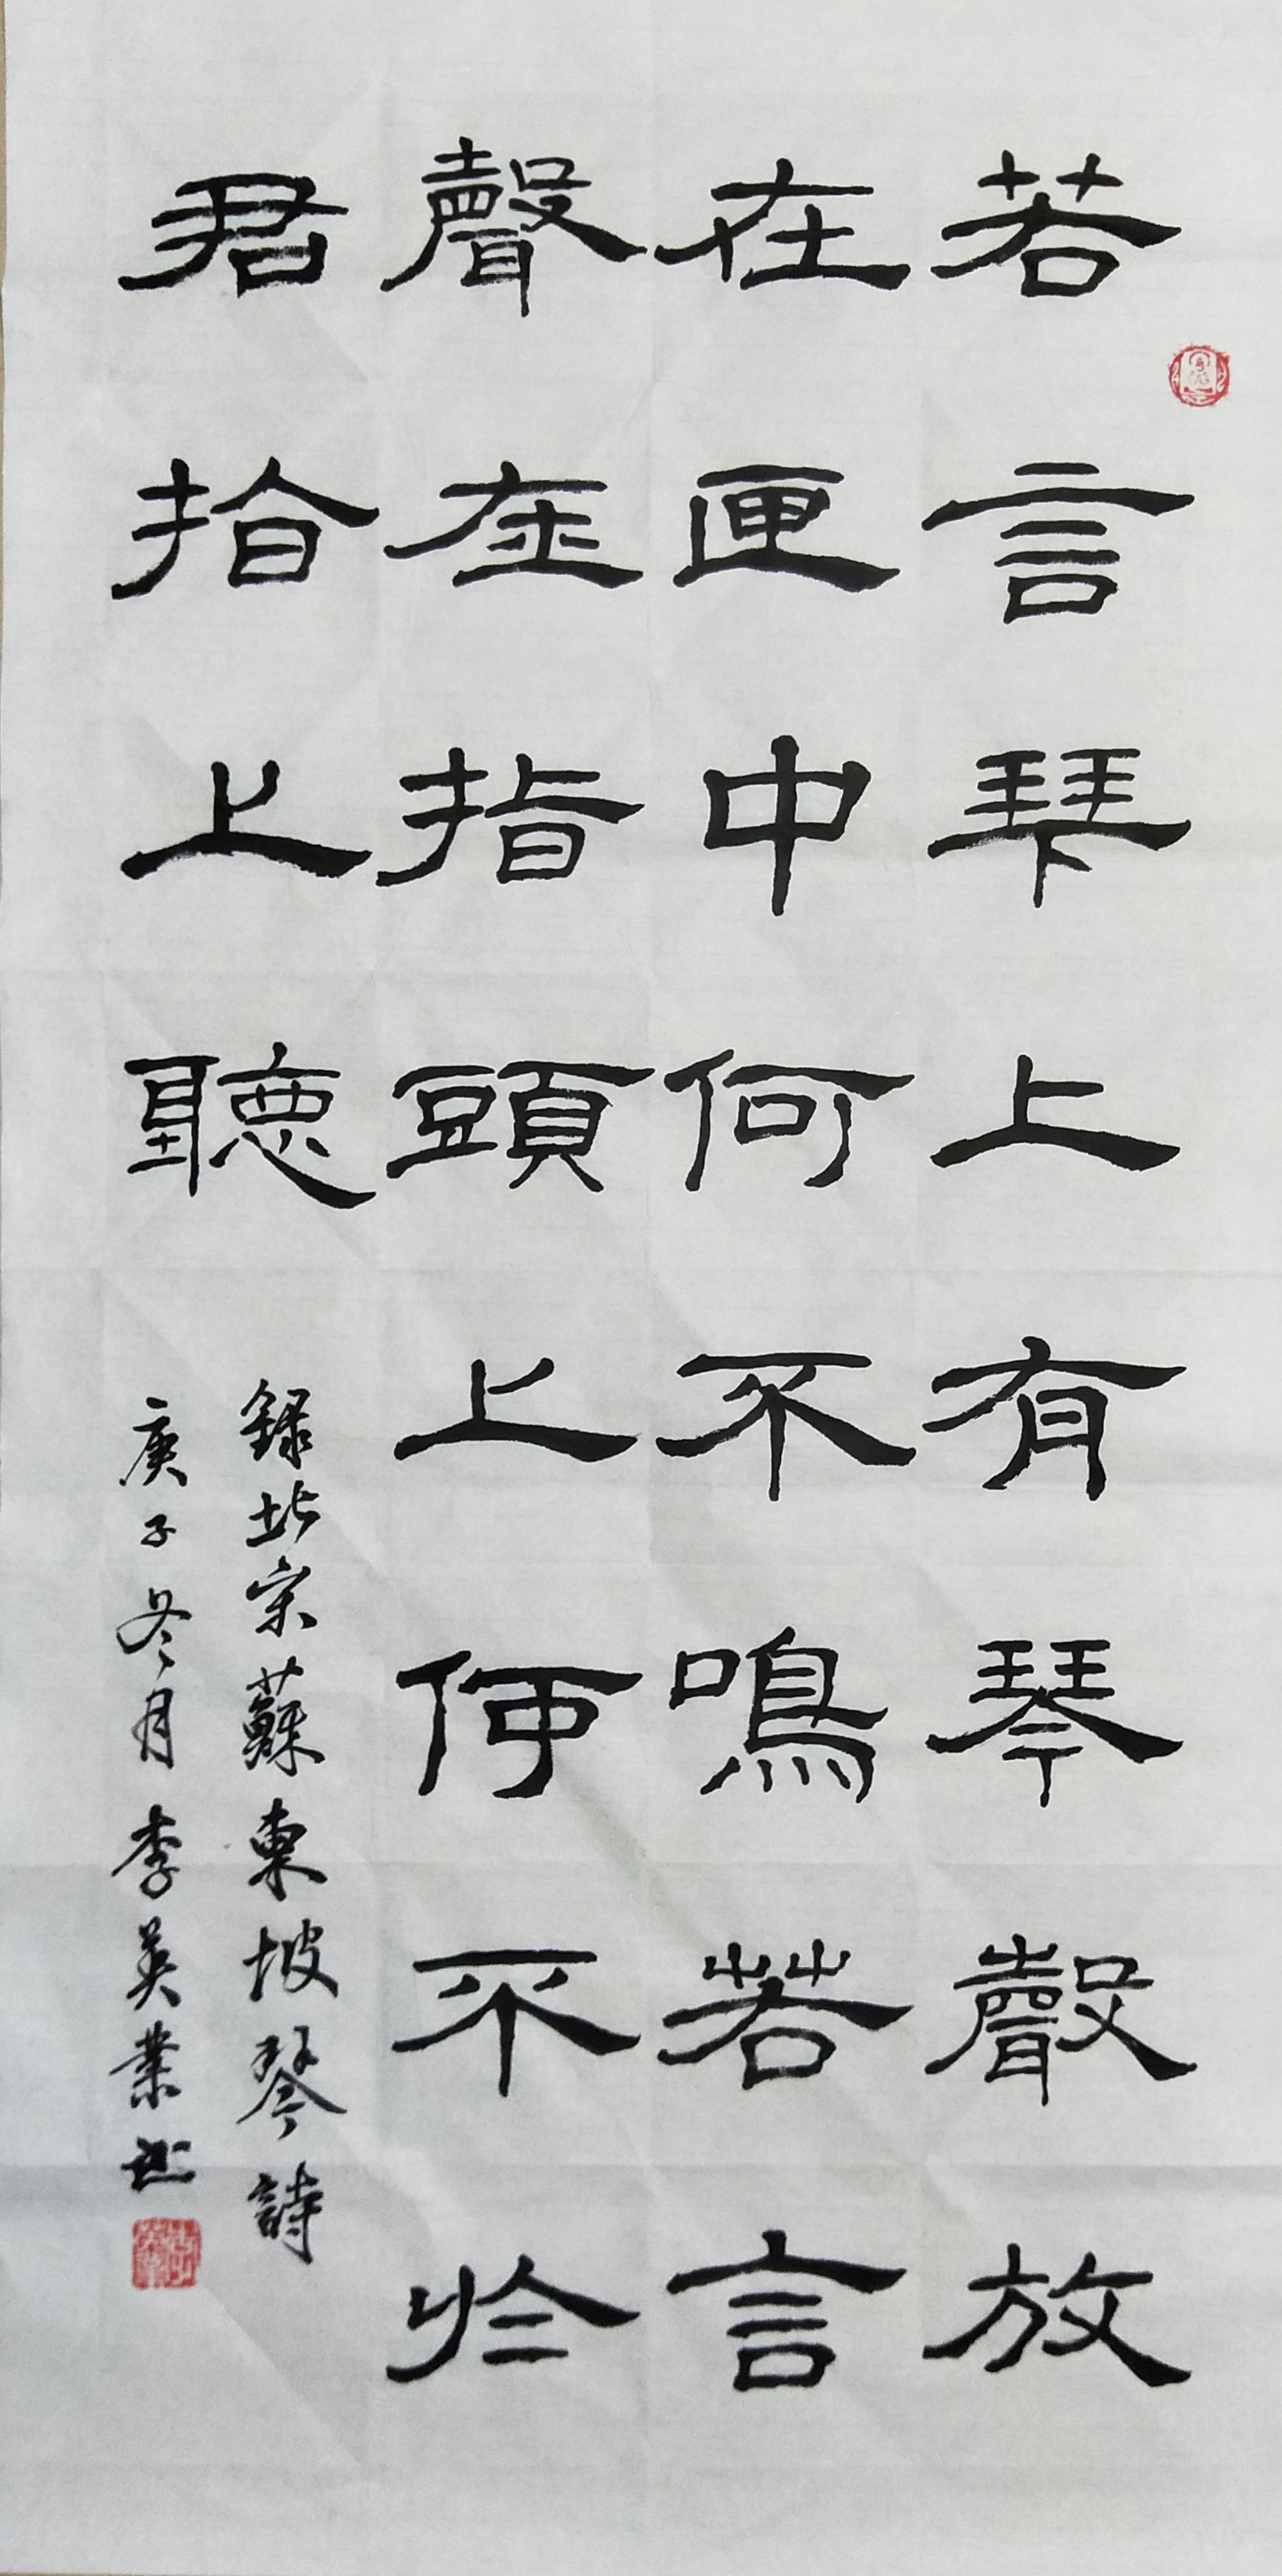 若言琴上有琴聲放
在匣中何不鳴若言
聲在指頭上何不於
君指上聽
録北宗蘇東坡琴詩
庚子冬月李英業書